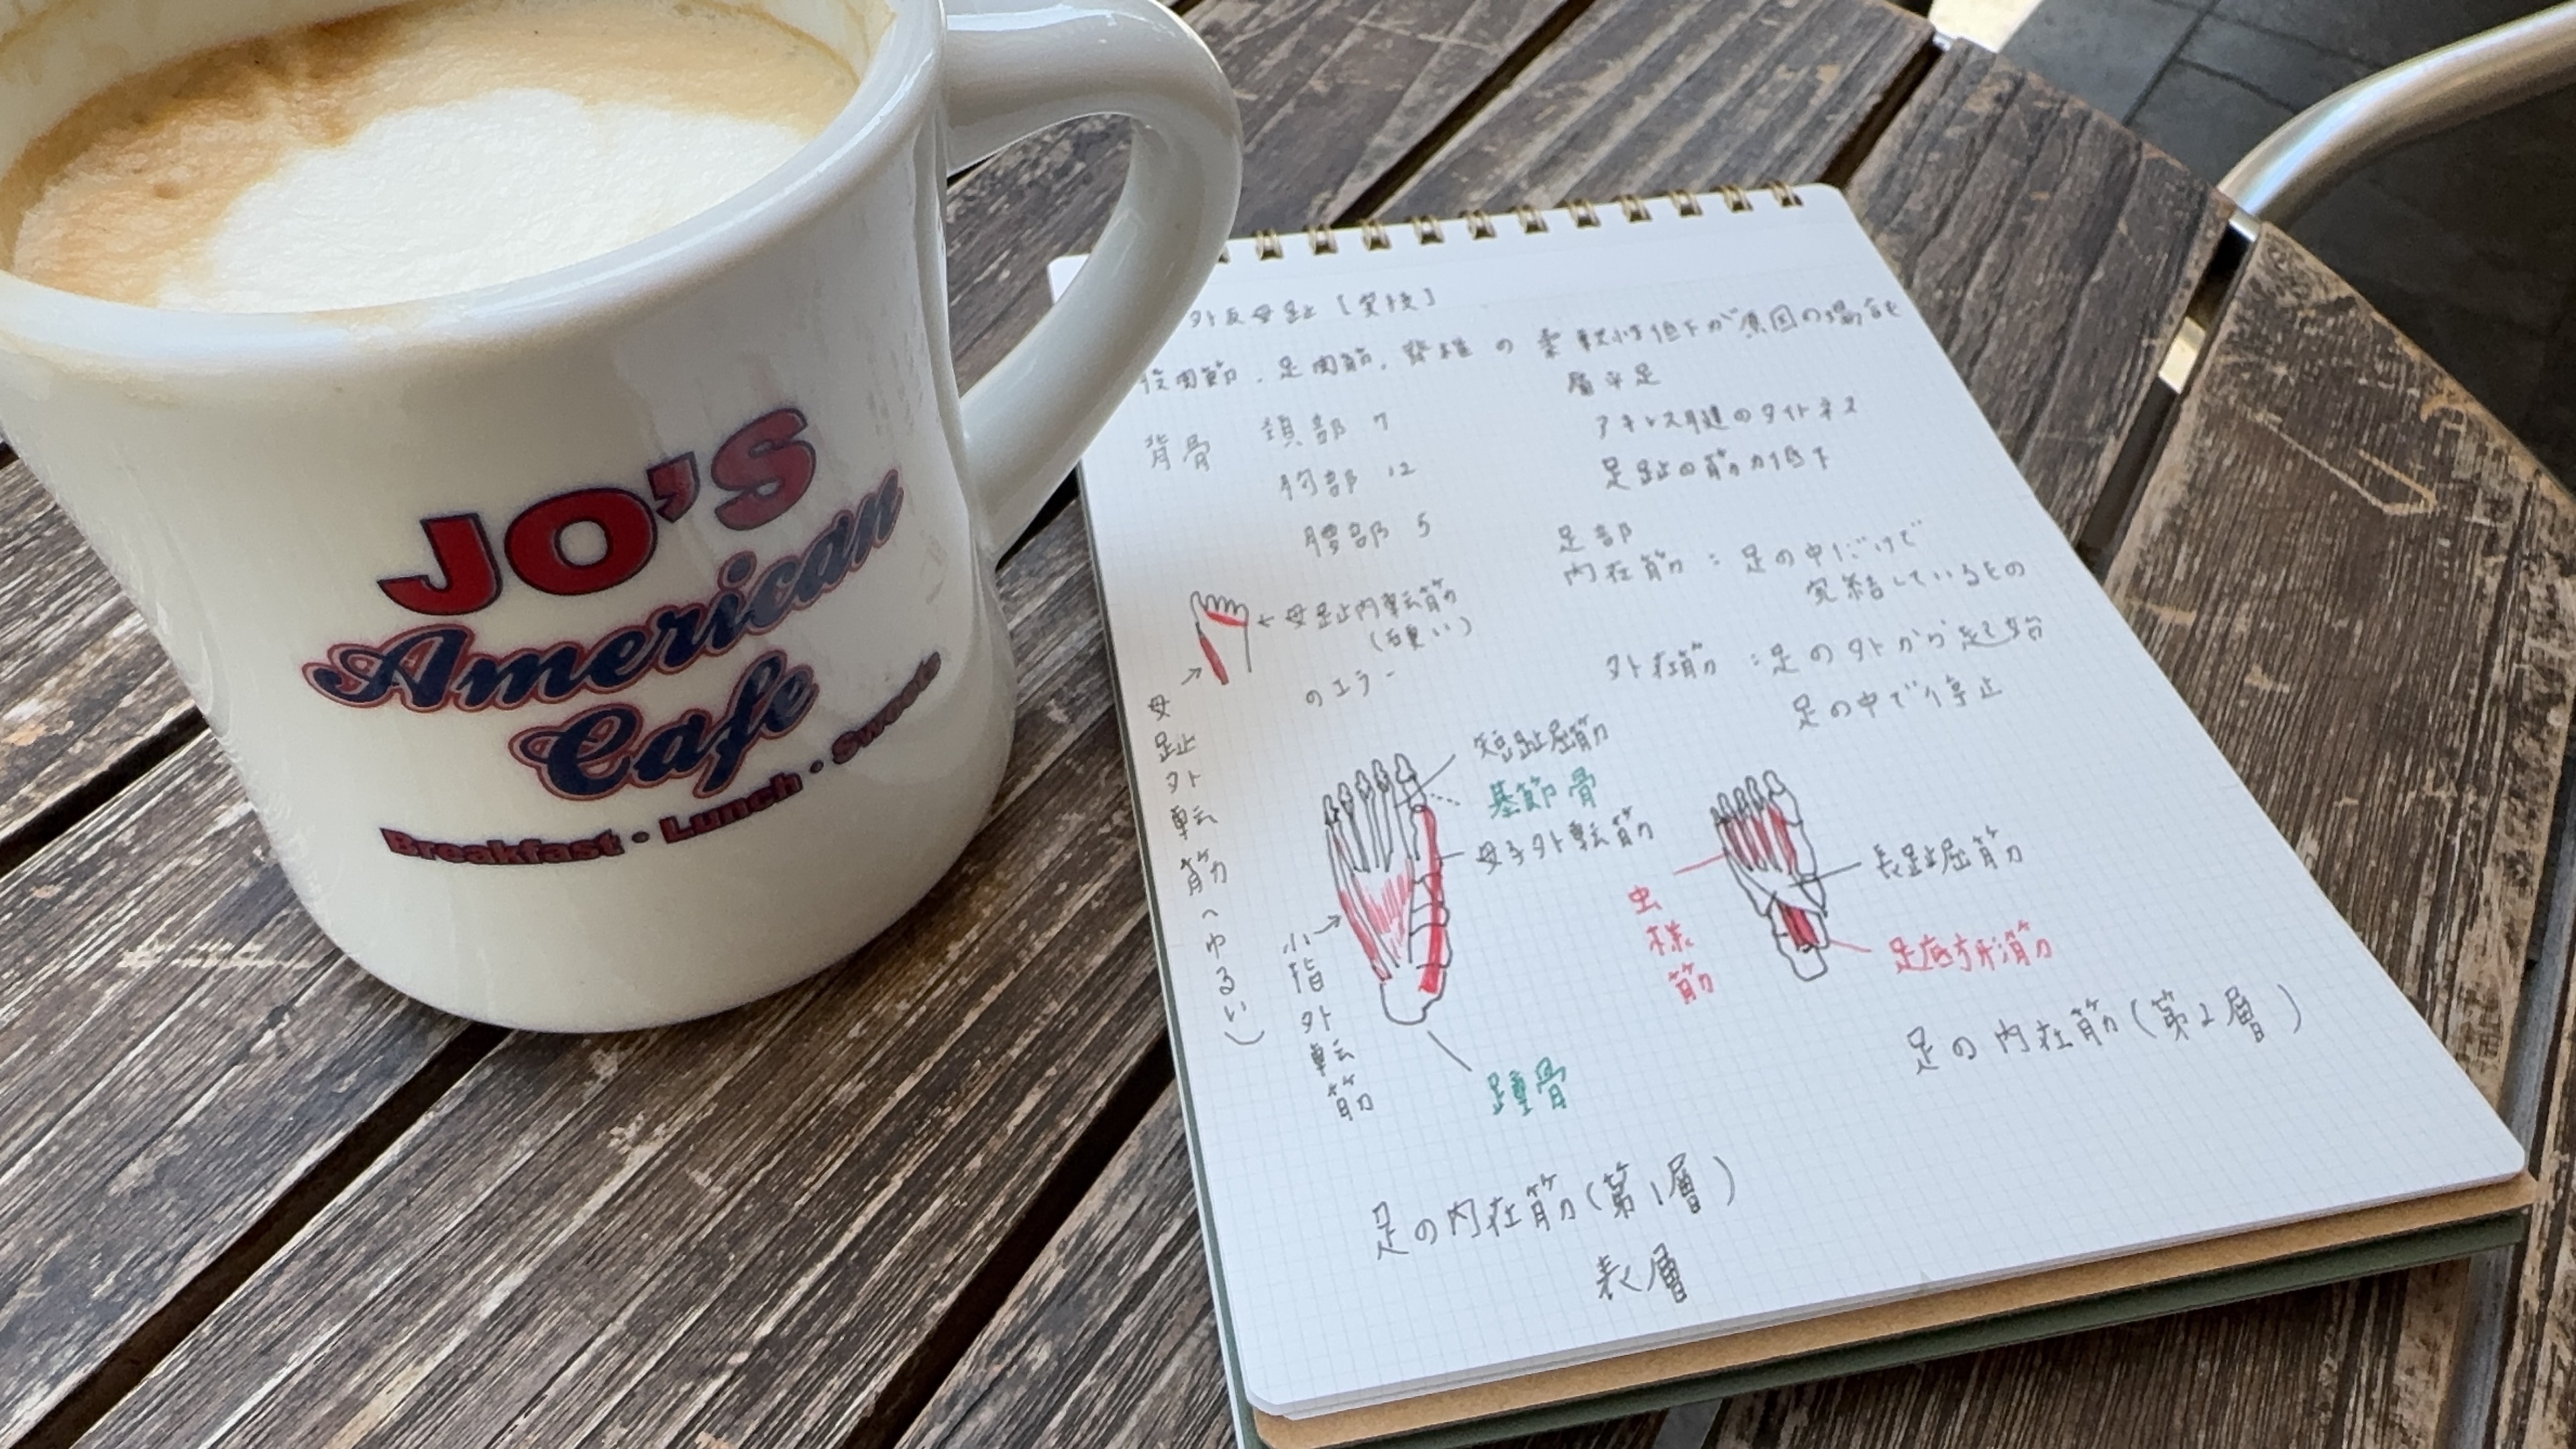 JO'S
American
Cafe
Breakfast・Lunch・Sweets
外反母趾［実技］
股関節、足関節、脊椎の柔軟性低下が原因の場合も
扁平足
アキレス腱のタイトネス
足趾の筋力低下
背骨 頚部 7
胸部 12
腰部 5
足部
内在筋：足の中だけで
完結しているもの
外在筋：足の外から起始
足の中で停止
←母趾内転筋
（硬い）
のエラー
母趾外転筋（ゆるい）
短趾屈筋
基節骨
母子外転筋
小指外転筋
踵骨
足の内在筋（第1層）
表層
虫様筋
長趾屈筋
足底方形筋
足の内在筋（第2層）